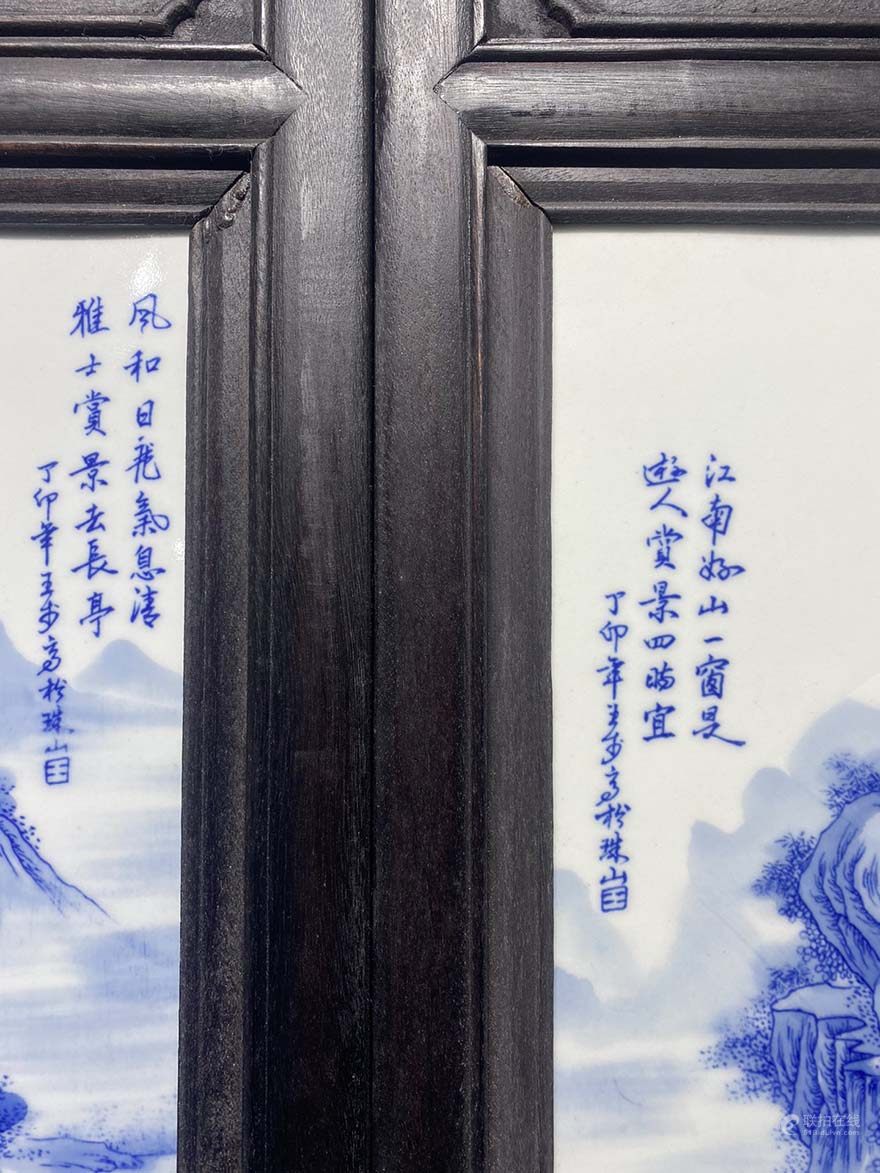 風和日麗氣息清
雅士賞景去長亭
丁卯年王步寫於珠山
王
江南好山一窗是
遊人賞景四時宜
丁卯年王步寫於珠山
王
联拍在线